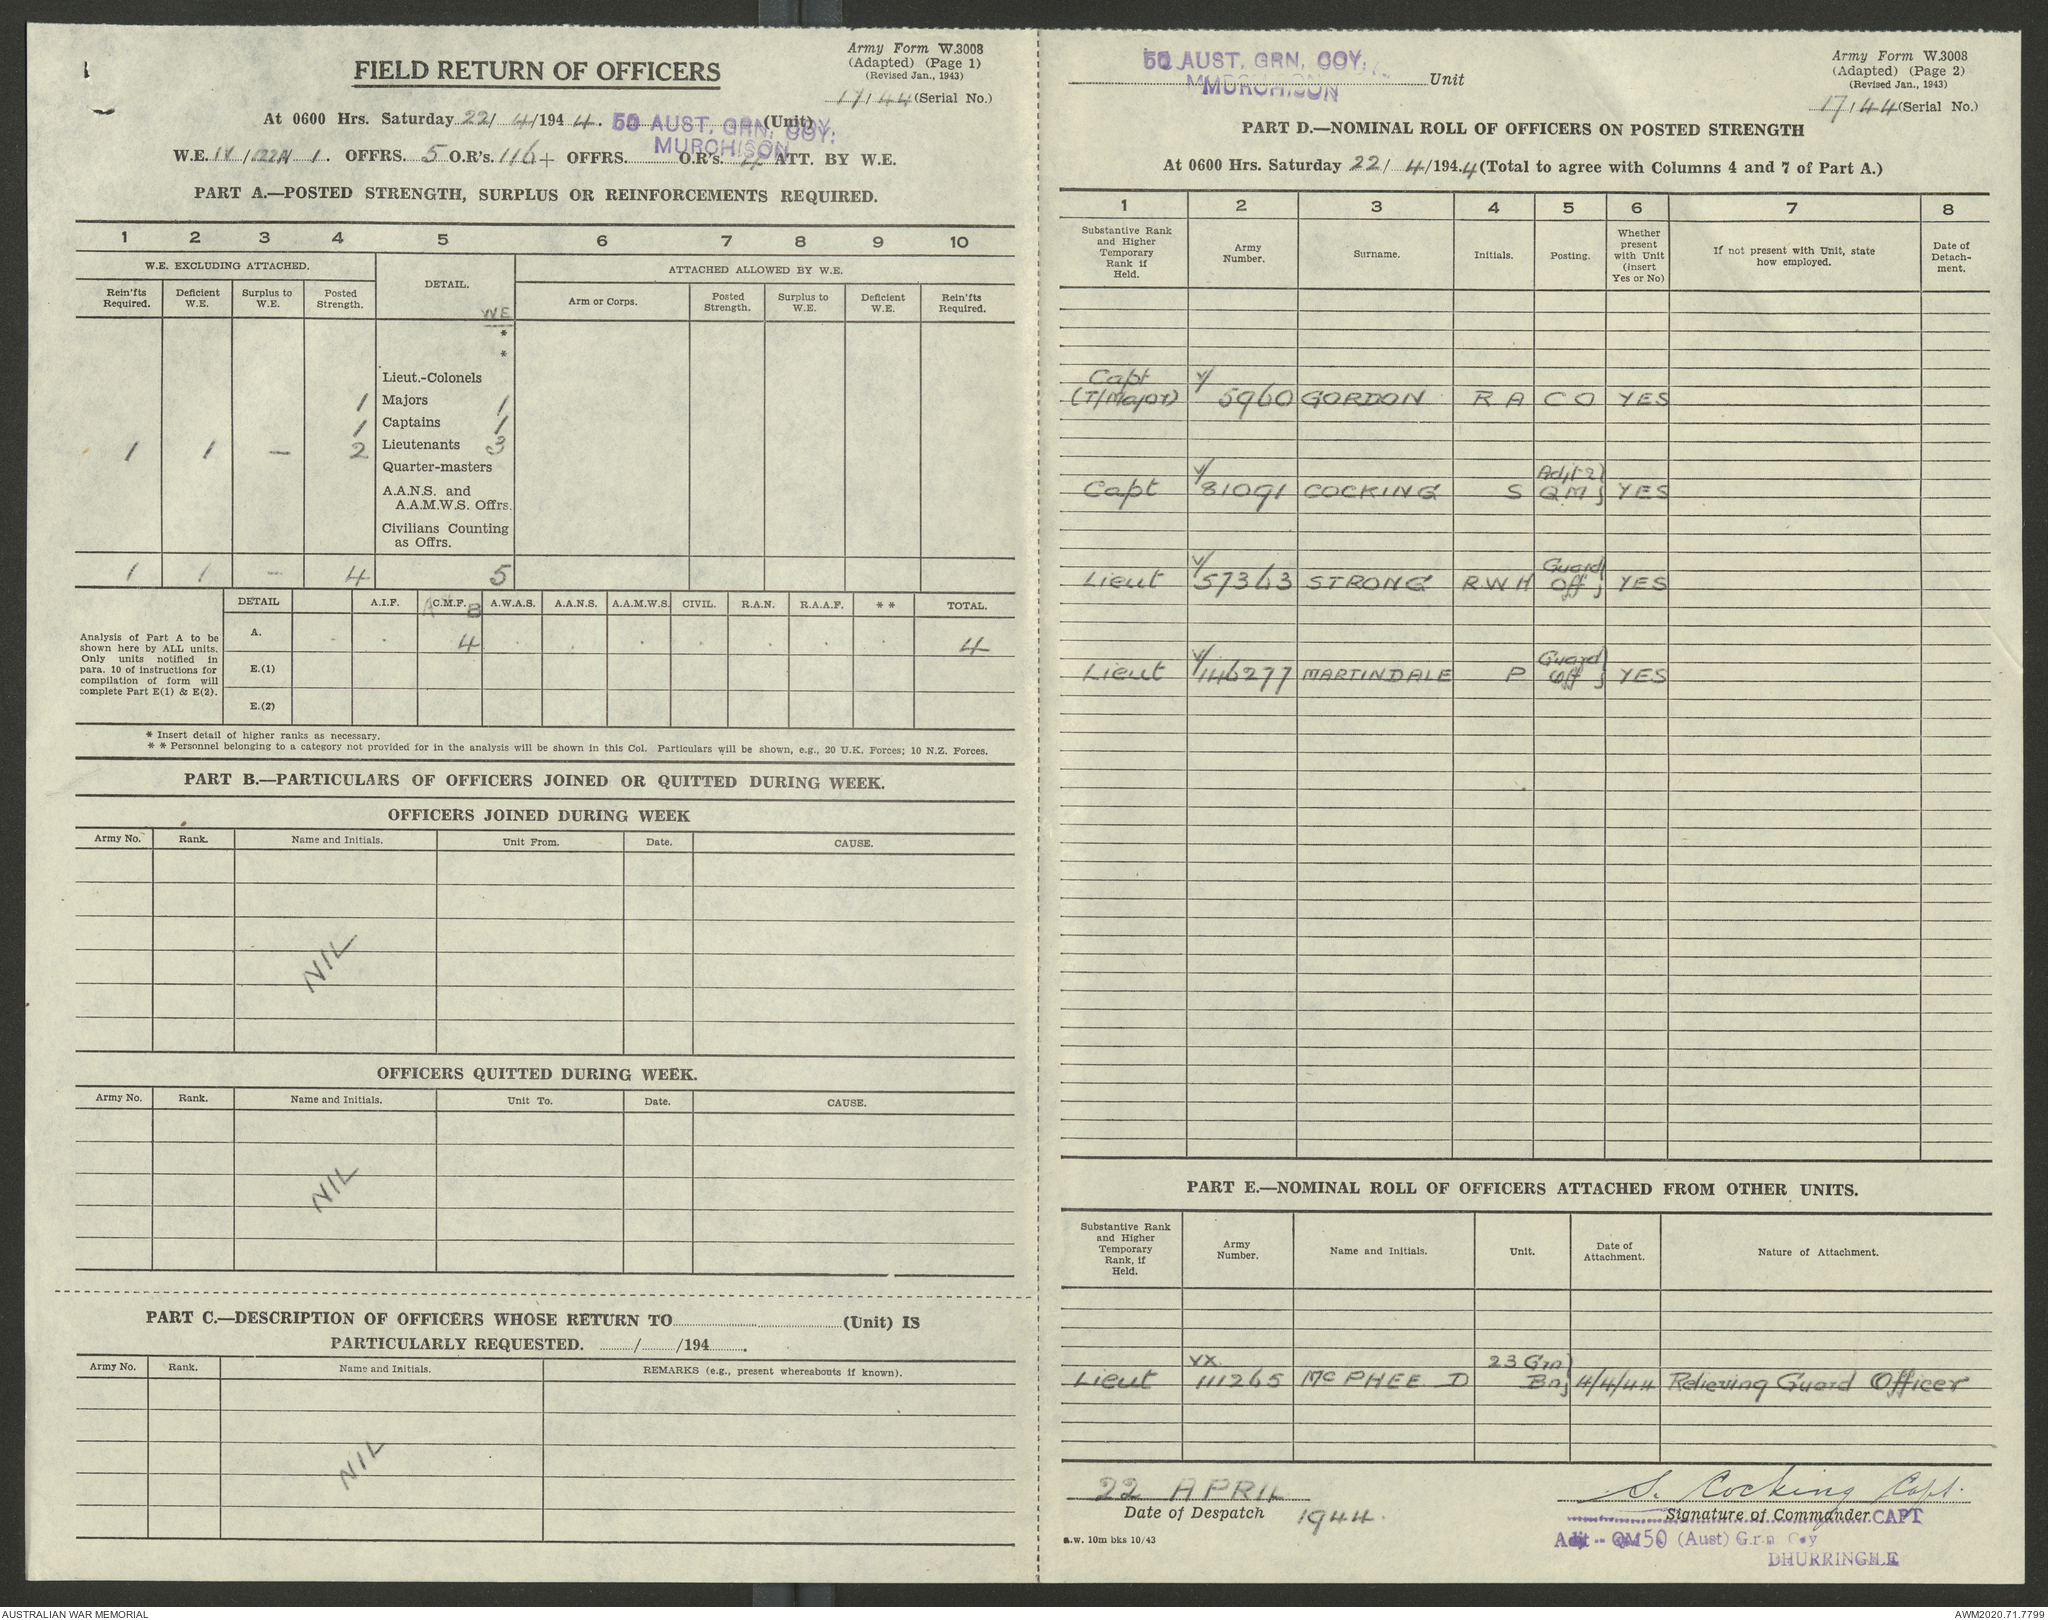 Army Form W.3008
(Adapted) (Page 1)
(Revised Jan., 1943)
FIELD RETURN OF OFFICERS
17/44 (Serial No.)
At 0600 Hrs. Saturday 22/4/1944. 50 AUST. GRN. COY. (Unit)
MURCHISON
W.E. OFFRS. 5 O.R's. 116 + OFFRS. O.R's. ATT. BY W.E.
PART A.—POSTED STRENGTH, SURPLUS OR REINFORCEMENTS REQUIRED.
1 2 3 4 5 6 7 8 9 10
W.E. EXCLUDING ATTACHED. DETAIL. ATTACHED ALLOWED BY W.E.
Rein'fts Required. Deficient W.E. Surplus to W.E. Posted Strength. Arm or Corps. Posted Strength. Surplus to W.E. Deficient W.E. Rein'fts Required.
WE
*
*
Lieut.-Colonels
1 Majors 1
1 Captains 1
1 1 — 2 Lieutenants 3
Quarter-masters
A.A.N.S. and
A.A.M.W.S. Offrs.
Civilians Counting
as Offrs.
1 1 - 4 5
DETAIL A.I.F. C.M.F. A.W.A.S. A.A.N.S. A.A.M.W.S. CIVIL. R.A.N. R.A.A.F. * * TOTAL.
Analysis of Part A to be
shown here by ALL units.
Only units notified in
para. 10 of instructions for
compilation of form will
complete Part E(1) & E(2).
A. 4 4
E.(1)
E.(2)
* Insert detail of higher ranks as necessary.
* * Personnel belonging to a category not provided for in the analysis will be shown in this Col. Particulars will be shown, e.g., 20 U.K. Forces; 10 N.Z. Forces.
PART B.—PARTICULARS OF OFFICERS JOINED OR QUITTED DURING WEEK.
OFFICERS JOINED DURING WEEK
Army No. Rank. Name and Initials. Unit From. Date. CAUSE.
NIL
OFFICERS QUITTED DURING WEEK.
Army No. Rank. Name and Initials. Unit To. Date. CAUSE.
NIL
PART C.—DESCRIPTION OF OFFICERS WHOSE RETURN TO (Unit) IS
PARTICULARLY REQUESTED. / /194 .
Army No. Rank. Name and Initials. REMARKS (e.g., present whereabouts if known).
NIL
50 AUST. GRN. COY. Unit
MURCHISON
Army Form W.3008
(Adapted) (Page 2)
(Revised Jan., 1943)
17/44 (Serial No.)
PART D.—NOMINAL ROLL OF OFFICERS ON POSTED STRENGTH
At 0600 Hrs. Saturday 22/4/1944 (Total to agree with Columns 4 and 7 of Part A.)
1 2 3 4 5 6 7 8
Substantive Rank and Higher Temporary Rank if Held. Army Number. Surname. Initials. Posting. Whether present with Unit (insert Yes or No) If not present with Unit, state how employed. Date of Detach-ment.
Capt V/
(T/Major) 5960 GORDON R A CO YES
V/ Adjt &
Capt 81091 COCKING S QM YES
V/ Guard
Lieut 57363 STRONG R W H Off YES
V/ Guard
Lieut 146277 MARTINDALE P Off YES
PART E.—NOMINAL ROLL OF OFFICERS ATTACHED FROM OTHER UNITS.
Substantive Rank and Higher Temporary Rank, if Held. Army Number. Name and Initials. Unit. Date of Attachment. Nature of Attachment.
VX 23 Grn
Lieut 111265 McPHEE D Bn 4/4/44 Relieving Guard Officer
22 APRIL S. Cocking Capt.
Date of Despatch 1944. Signature of Commander CAPT
a.w. 10m bks 10/43
Adjt - QM 50 (Aust) Grn Coy
DHURRINGILE
AUSTRALIAN WAR MEMORIAL
AWM2020.71.7799